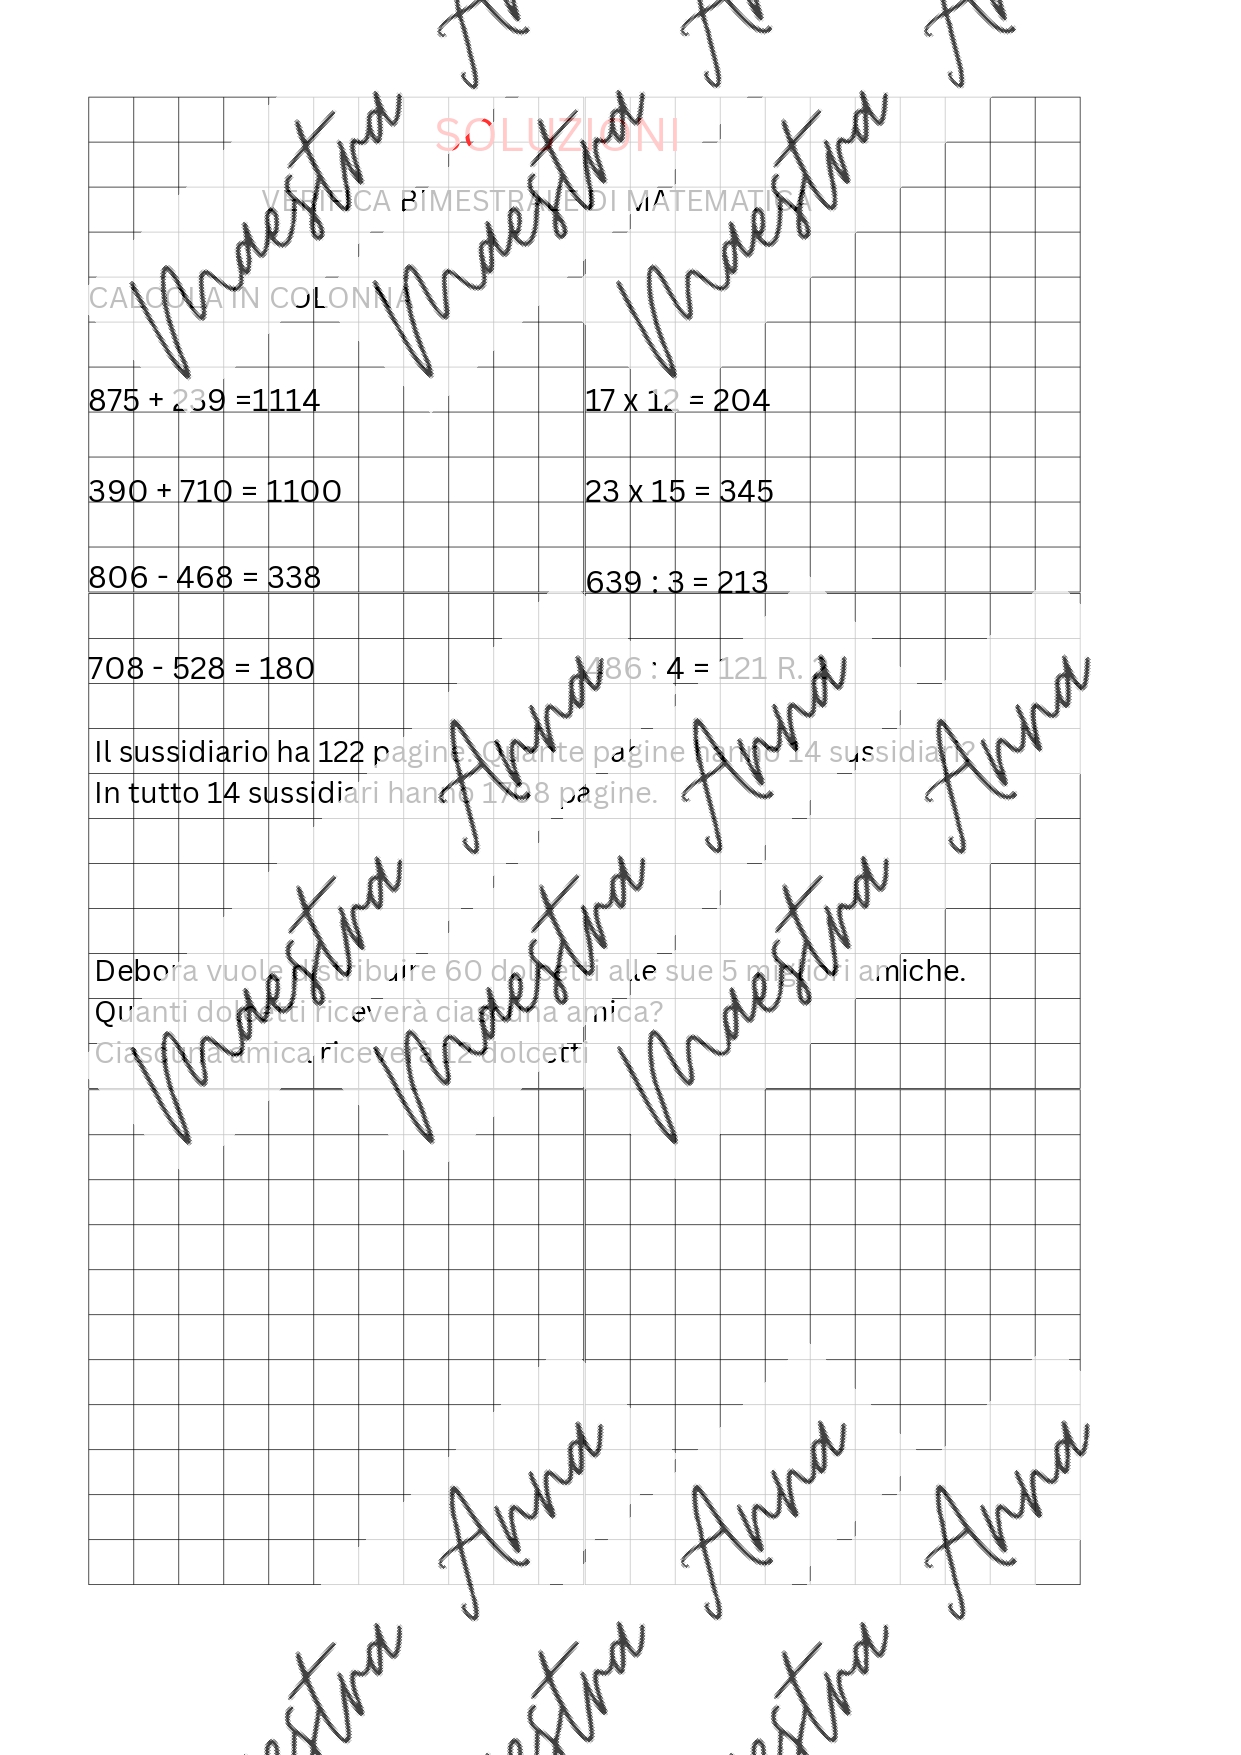 SOLUZIONI
VERIFICA BIMESTRALE DI MATEMATICA
CALCOLA IN COLONNA
875 + 239 =1114
17 x 12 = 204
390 + 710 = 1100
23 x 15 = 345
806 - 468 = 338
639 : 3 = 213
708 - 528 = 180
486 : 4 = 121 R. 2
Il sussidiario ha 122 pagine. Quante pagine hanno 14 sussidiari?
In tutto 14 sussidiari hanno 1708 pagine.
Debora vuole distribuire 60 dolcetti alle sue 5 migliori amiche.
Quanti dolcetti riceverà ciascuna amica?
Ciascuna amica riceverà 12 dolcetti
Maestra Anna
Maestra Anna
Maestra Anna
Maestra Anna
Maestra Anna
Maestra Anna